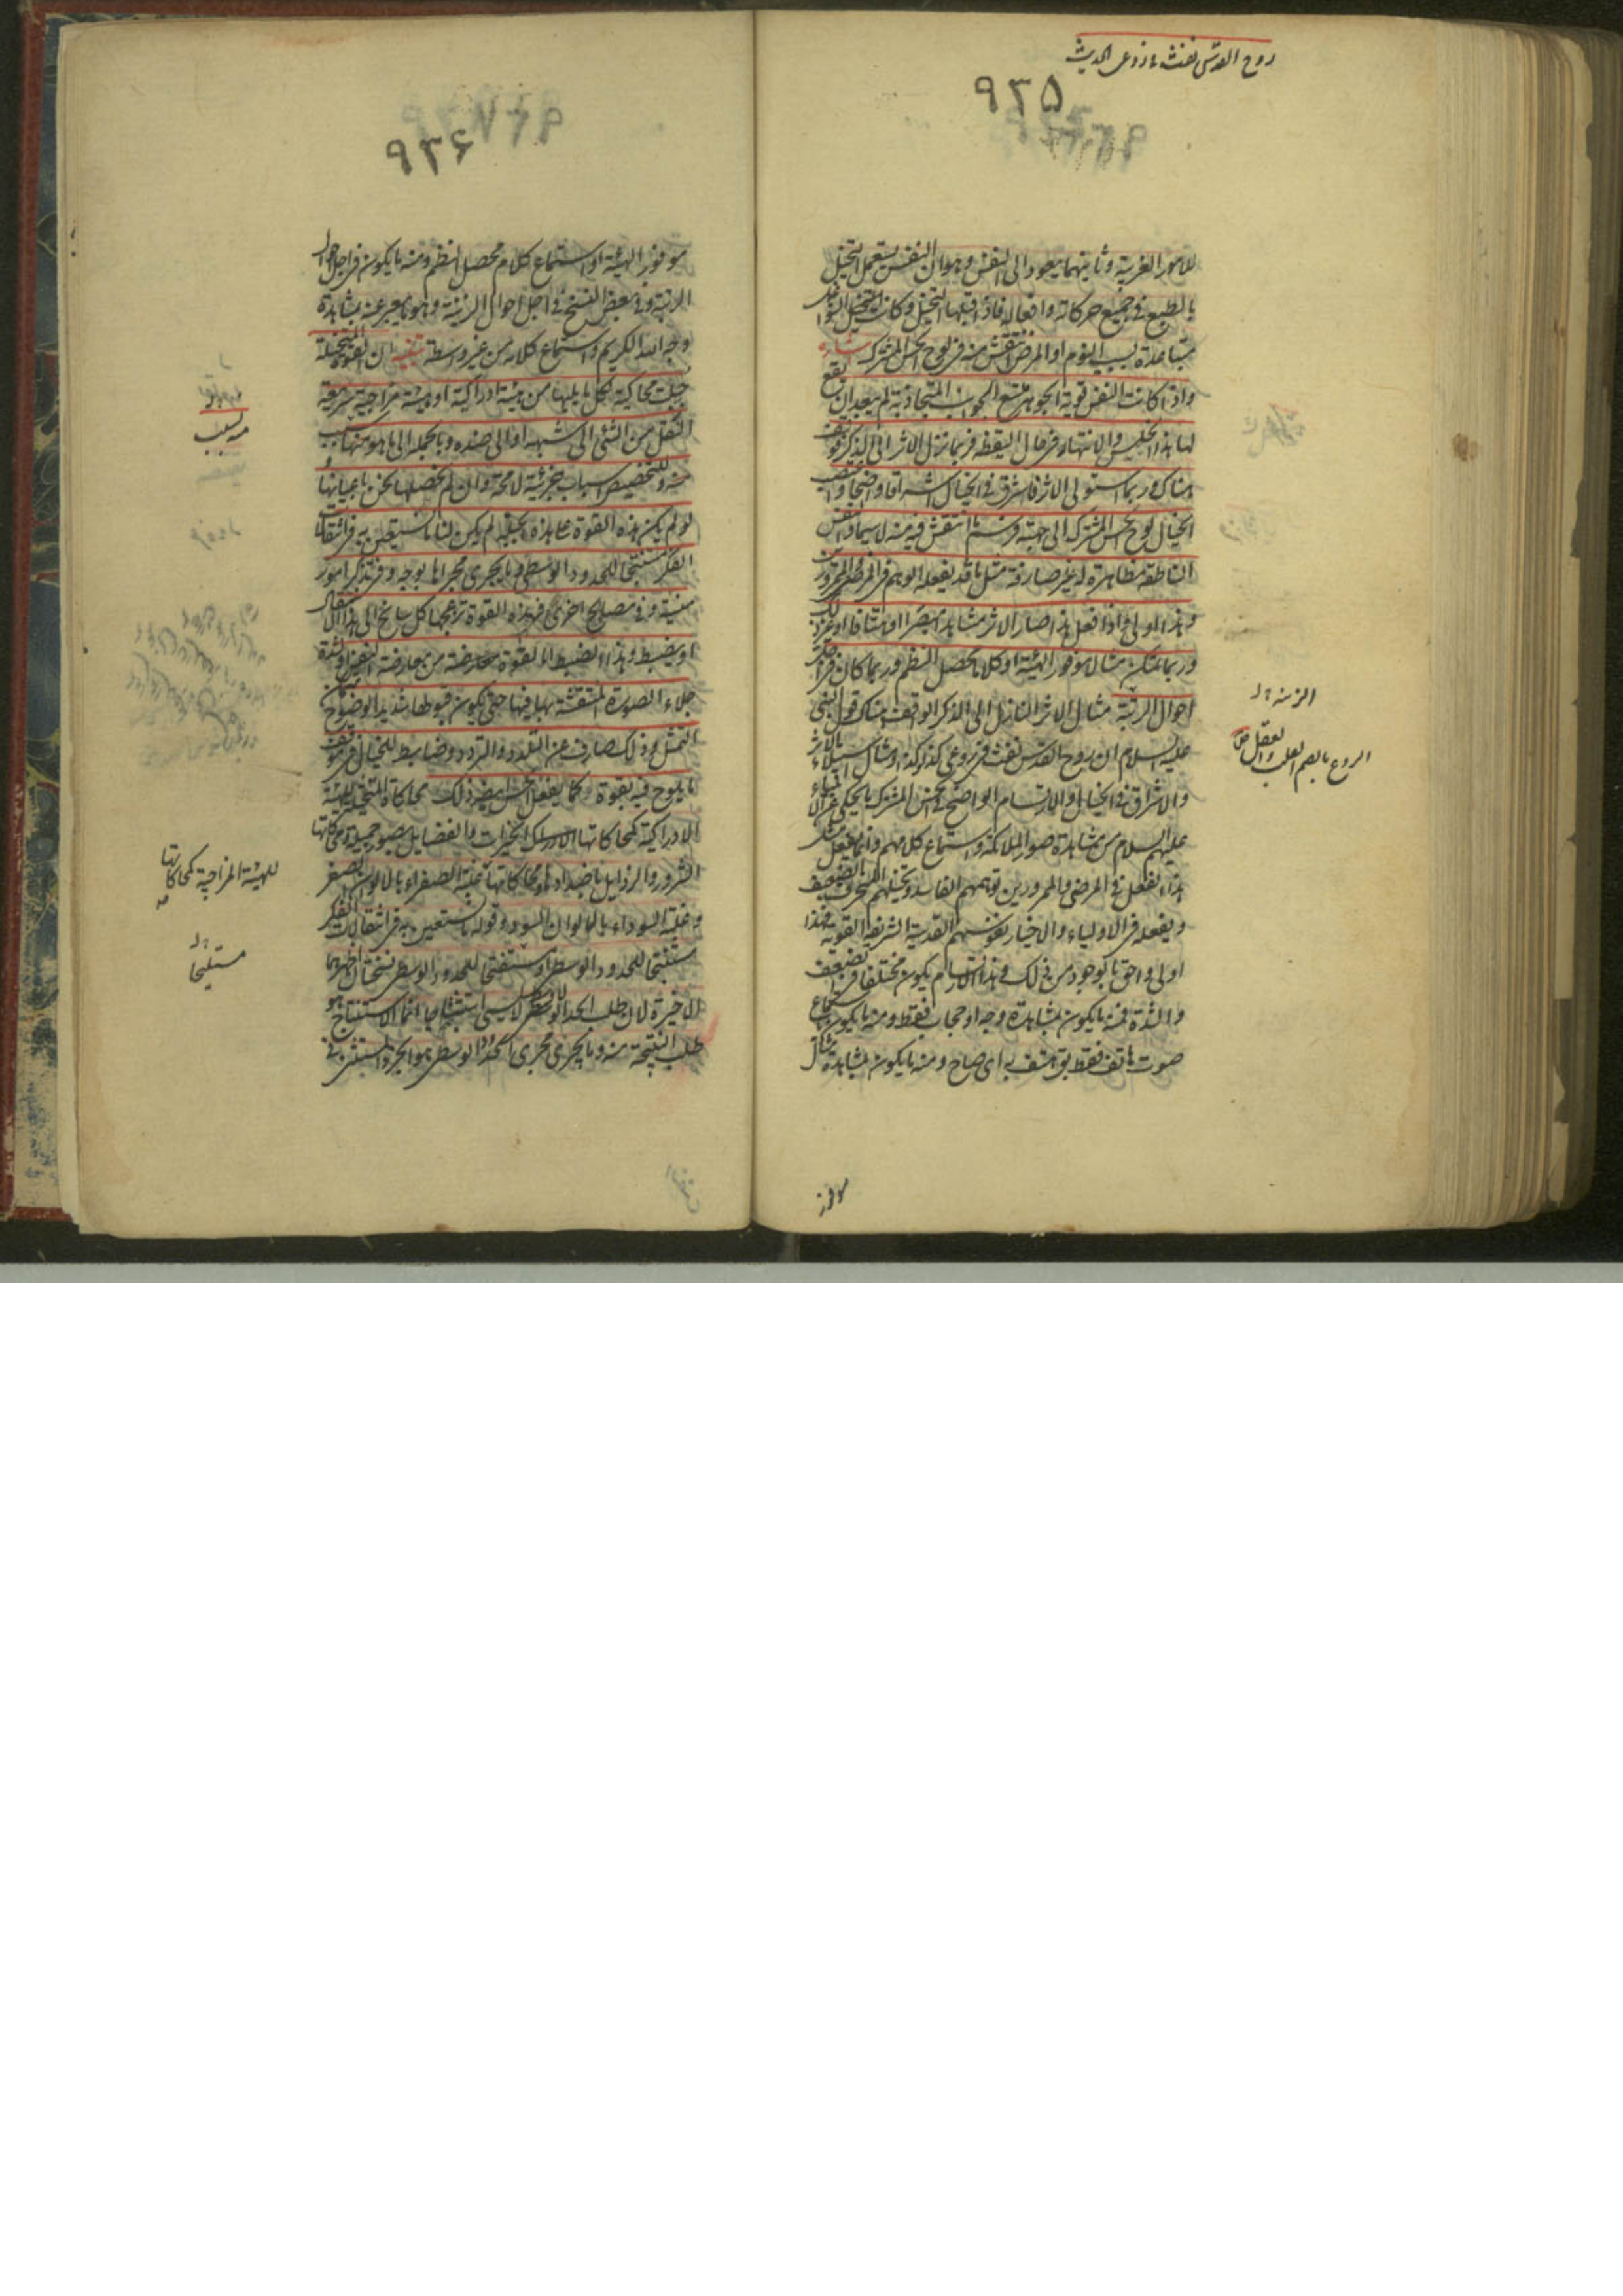 روح القدس نفث فی روعی الحدیث
۹۳۵
للامور الغریبة وثانیهما یعود الی النفس وهو ان النفس یستعمل التخیل
بالطبع فی جمیع حرکاته وافعاله فاذا قبلها التخیل وکان التخیل الشواغل
متباعدة بسبب النوم او المرض انتقش منه فی لوح الحس المشترک اشارة
واذا کانت النفس قویة الجوهر تسع الجوانب المتجاذبة لم یبعد ان یقع
لها هذا الخلس والانتهاز فی حال الیقظة فربما نزل الاثر الی الذکر فوقف
هناک وربما استولی الاثر فاشرق فی الخیال اشراقا واضحا واغتصب
الخیال لوح الحس المشترک الی جهته فرسم ما انتقش فیه منه لاسیما والنفس
الناطقة مظاهرة له غیر صارفة مثل ما قد یفعله الوهم فی المرضی والممرورین
وهذا اولی واذا فعل هذا صار الاثر مشاهدا مبصرا او هتافا او غیر ذلک
وربما تمکن مثالا موفور الهیئة او کلاما محصل النظم وربما کان فی اجل
احوال الزینة مثال الاثر النازل الی الذکر الواقف هناک قول النبی
علیه السلام ان روح القدس نفث فی روعی کذا وکذا ومثال استیلاء الاثر
والاشراق فی الخیال والارتسام الواضح فی الحس المشترک ما یحکی عن الانبیاء
علیهم السلام من مشاهدة صور الملائکة واستماع کلامهم وانما یفعل مثل
هذا الفعل فی المرضی والممرورین توهمهم الفاسد وتخیلهم المنحرف الضعیف
ویفعله فی الاولیاء والاخیار نفوسهم القدسیة الشریفة القویة فهذا
اولی واحق بالوجود من ذلک وهذا الارتسام یکون مختلفا فی الضعف
والشدة فمنه ما یکون بمشاهدة وجه او حجاب فقط ومنه ما یکون باستماع
صوت هاتف فقط یق هتف به ای صاح ومنه ما یکون بمشاهدة مثال
الزینة
الروع بالضم القلب والعقل ص
موفور
۹۳۶
موفور الهیئة او استماع کلام محصل النظم ومنه ما یکون فی اجل احوال
الرتبة وفی بعض النسخ فی اجل احوال الزینة وهو ما یعبر عنه بمشاهدة
وجه الله الکریم واستماع کلامه من غیر واسطة تنبیه ان القوة المتخیلة
جبلت محاکیة لکل ما یلیها من هیئة ادراکیة او هیئة مزاجیة سریعة
التنقل من الشیء الی شبهه او الی ضده وبالجملة الی ما هو منها بسبب
منه وللتخصیص اسباب جزئیة لامحة وان لم نحصلها نحن باعیانها و
لو لم یکن هذه القوة علی هذه الجبلة لم یکن لنا ما نستعین به فی انتقالات
الفکر مستنتجا للحدود الوسطی وما یجری مجراها بوجه وفی تذکر امور
منسیة وفی مصالح اخری فهذه القوة تزعجها کل سانح الی هذا الانتقال
او یضبط وهذا الضبط اما لقوة معارضة من معارضة النفس او لشدة
جلاء الصورة المنتقشة بها فیها حتی یکون قبولها شدید الوضوح
التمثل وذلک صارف عن التلدد والتردد وضابط للخیال فی موقف
ما یلوح فیه بقوة وکما یفعل الحس ایضا ذلک محاکاة المتخیلة للهیئة
الادراکیة کمحاکاتها الخیرات والفضایل بصور جمیلة ومحاکاتها
الشرور والرذایل باضدادها ومحاکاتها غلبة الصفراء بالالوان الصفر
وغلبة السوداء بالالوان السود وقوله ما نستعین به فی انتقالات الفکر
مستنتجا للحدود الوسطی او مستفتحا للحدود الوسطی نسختان اظهرهما
الاخیرة لان طلب الحد الاوسط لا یسمی استنتاجا انما الاستنتاج هو
طلب النتیجة منه وما یجری مجری الحدود الوسطی هو الجزء المستثنی فی
بسبب
للهیئة المزاجیة کمحاکاتها
صه